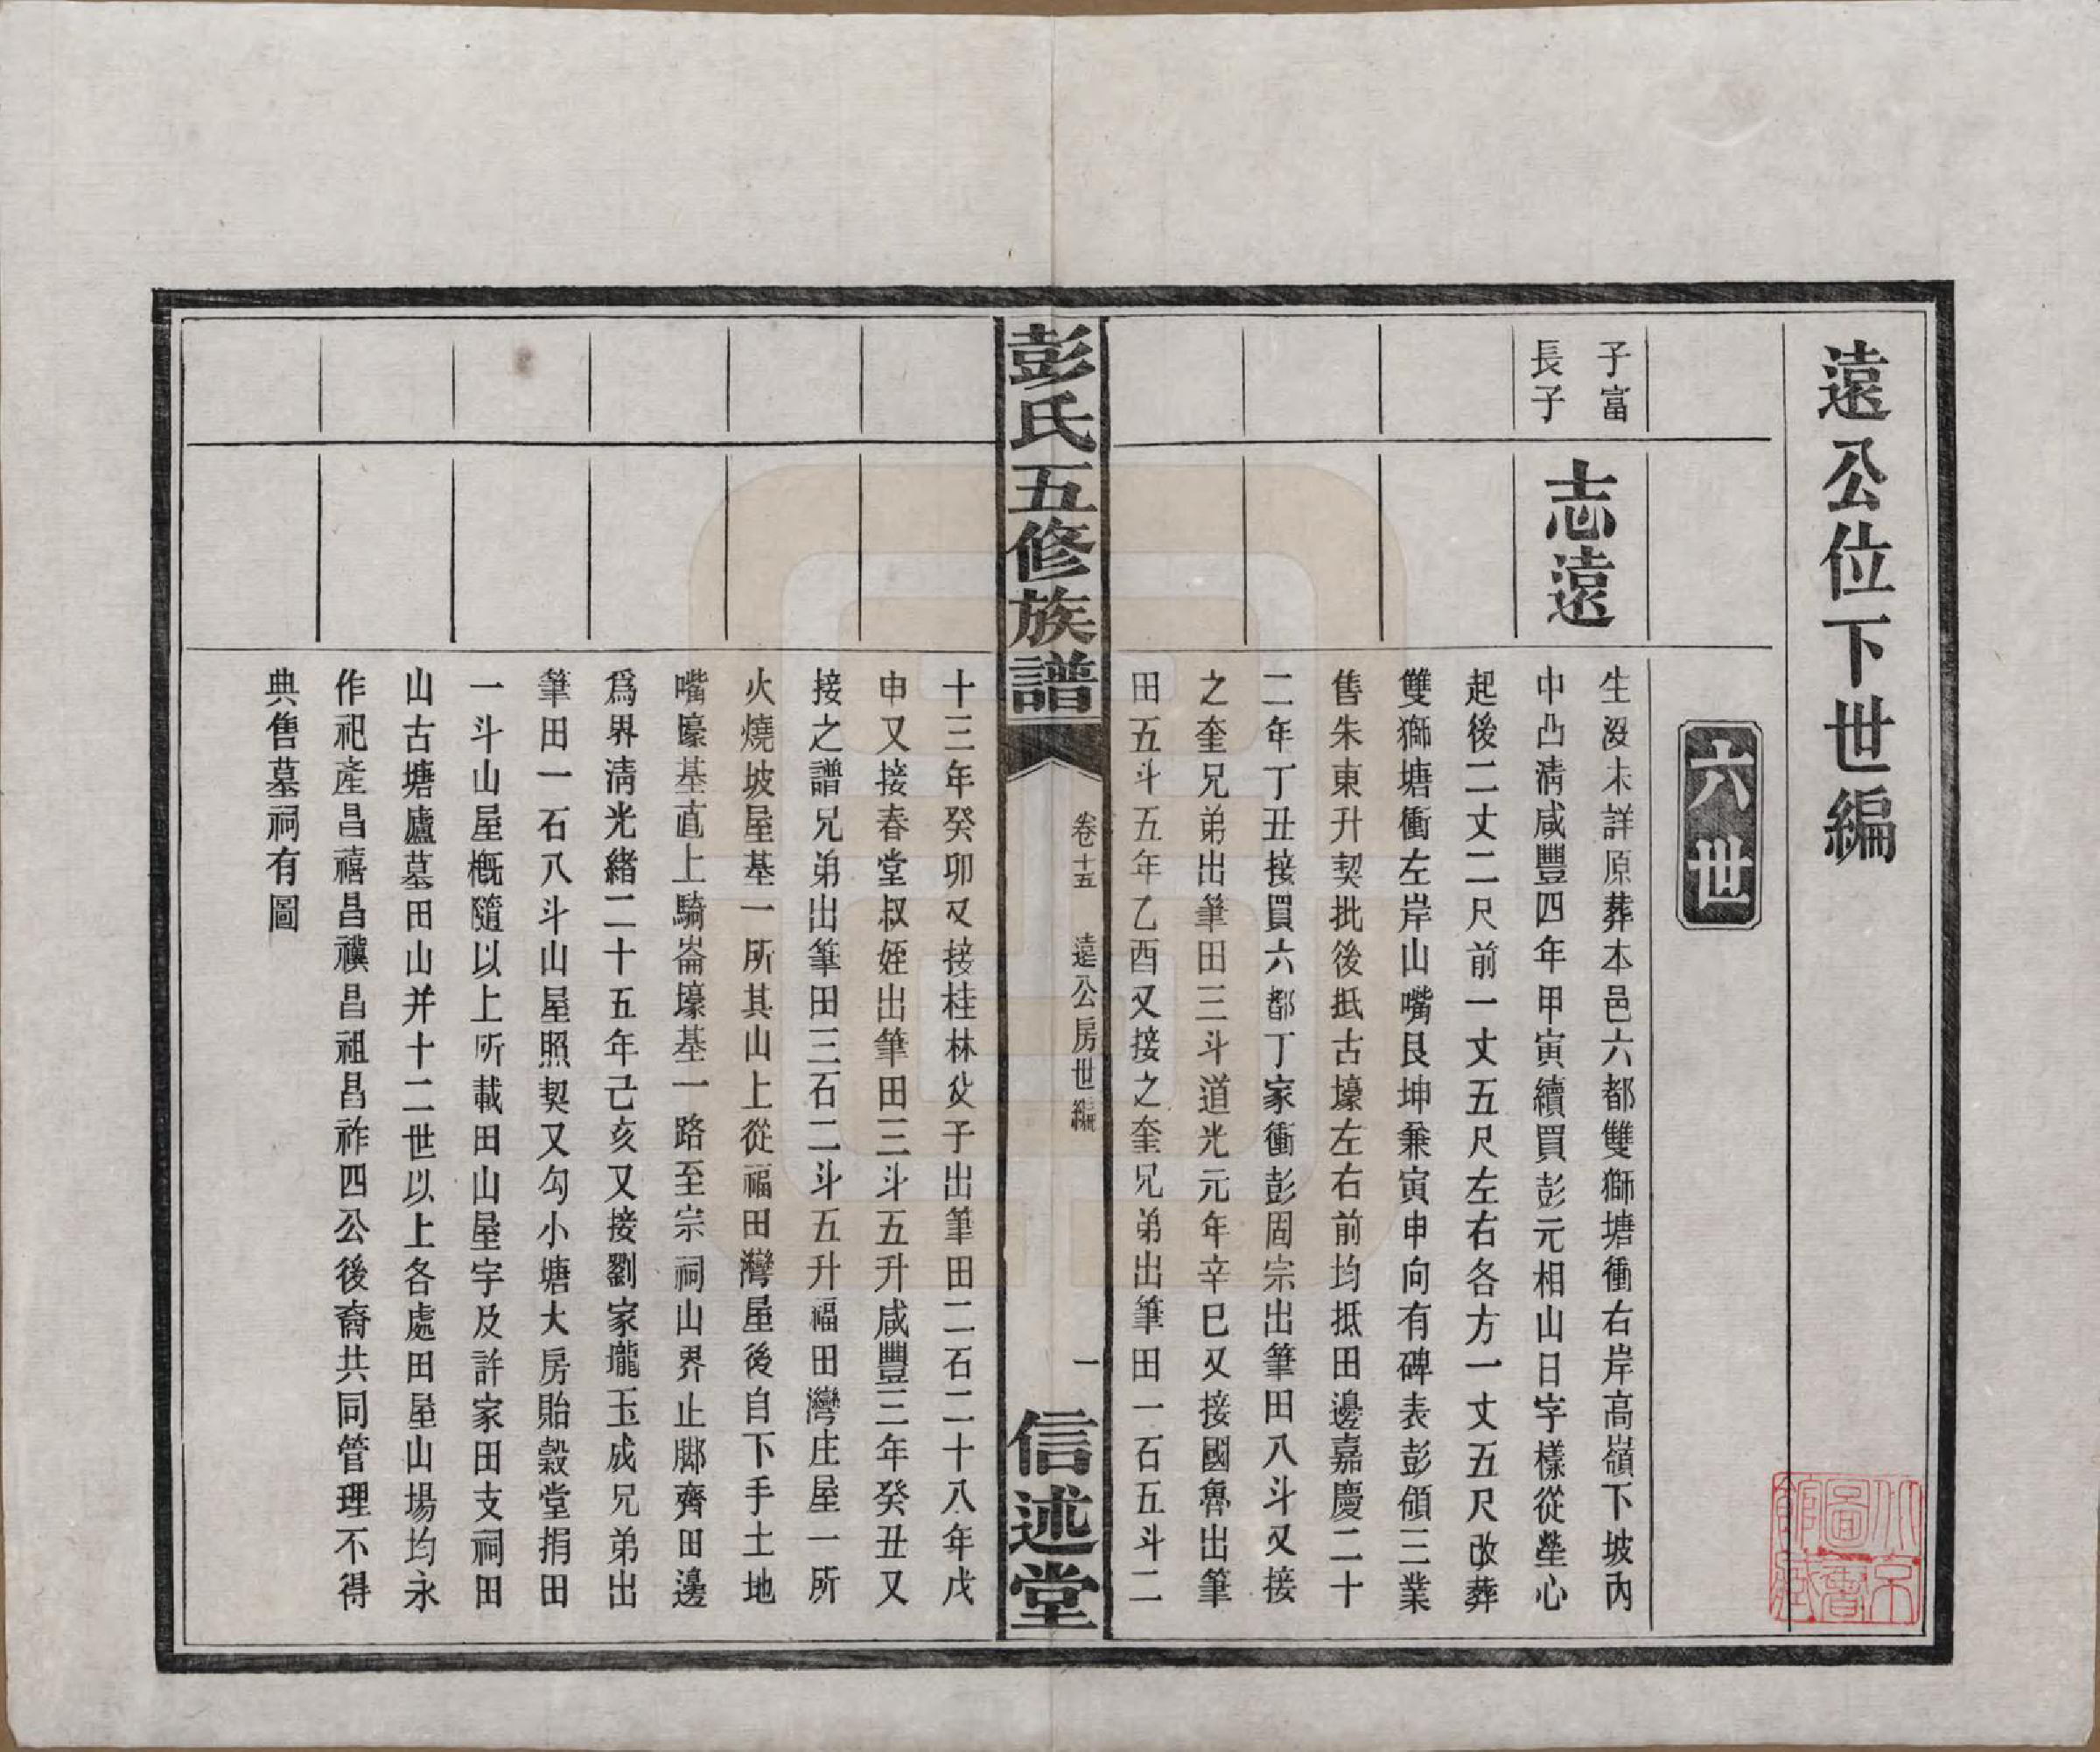 遠公位下世編
六世
子富
長子
志遠
生沒未詳原葬本邑六都雙獅塘衝右岸高嶺下坡內
中凸淸咸豐四年甲寅續買彭元相山日字樣從塋心
起後二丈二尺前一丈五尺左右各方一丈五尺改葬
雙獅塘衝左岸山嘴艮坤兼寅申向有碑表彭傾三業
售朱東升契批後抵古壕左右前均抵田邊嘉慶二十
二年丁丑接買六都丁家衝彭固宗出筆田八斗又接
之奎兄弟出筆田三斗道光元年辛巳又接國魯出筆
田五斗五年乙酉又接之奎兄弟出筆田一石五斗二
彭氏五修族譜
卷十五
遠公房世編
一
信述堂
十三年癸卯又接桂林父子出筆田二石二十八年戊
申又接春堂叔姪出筆田三斗五升咸豐三年癸丑又
接之譜兄弟出筆田三石二斗五升福田灣庄屋一所
火燒坡屋基一所其山上從福田灣屋後自下手土地
嘴壕基直上騎崙壕基一路至宗祠山界止腳齊田邊
爲界淸光緒二十五年己亥又接劉家壠玉成兄弟出
筆田一石八斗山屋照契又勾小塘大房貽穀堂捐田
一斗山屋槪隨以上所載田山屋宇及許家田支祠田
山古塘廬墓田山并十二世以上各處田屋山場均永
作祀產昌禧昌禩昌祖昌祚四公後裔共同管理不得
典售墓祠有圖
北京
圖書
館藏